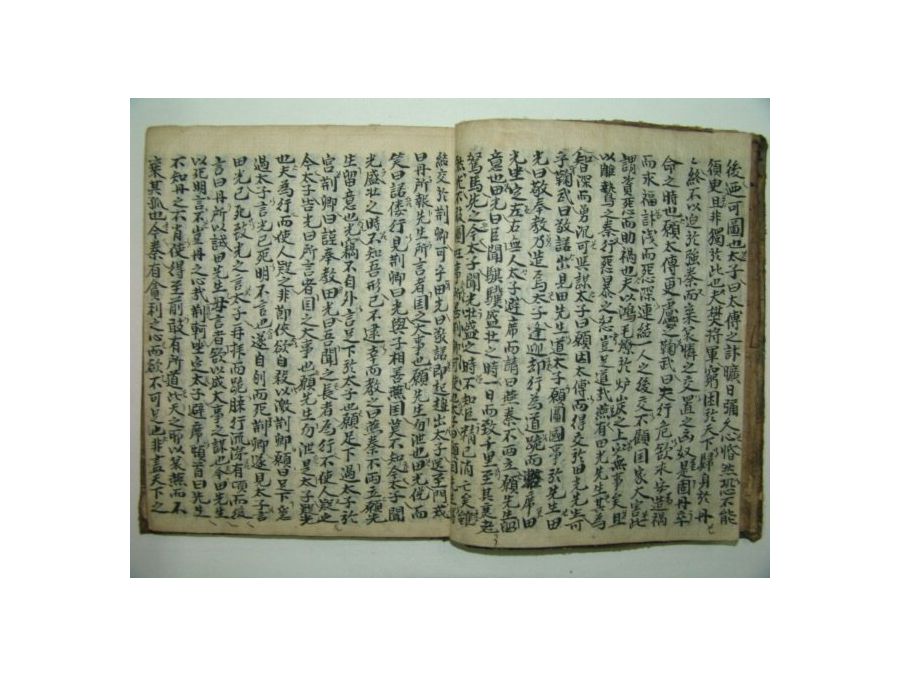 後迺可圖也太子曰太傅之計曠日彌久心惛然恐不能
須臾且非獨於此也夫樊將軍窮困於天下歸身於丹
終不以迫於強秦而棄哀憐之交置之匈奴是固丹卒
命之時也願太傅更慮之鞠武曰夫行危欲求安造禍
而求福計淺而怨深連結一人之後交不顧國家大害此
謂資怨而助禍也夫以鴻毛燎於炉炭之上必無事矣且
以雕鷙之秦行怨暴之怒豈足道哉燕有田光先生其為
智深而勇沉可與謀太子曰願因太傅而得交於田先生可
乎鞠武曰敬諾出見田先生道太子願圖國事於先生田
光曰敬奉教乃造焉太子逢迎却行為道跪而席田
光坐定左右無人太子避席而請曰燕秦不两立願先生留
意也田光曰臣聞騏驥盛壮之時一日而致千里至其衰老
駑馬先之今太子聞光壮盛之時不知臣精已消亡矣雖
然光不敢圖
結交於荊卿可乎田光曰敬諾即起趨出太子送至門戒
曰丹所報先生所言者国之大事也願先生勿泄也田光俛而
笑曰諾僂行見荊卿曰光與子相善燕国莫不知今太子聞
光盛壮之時不知吾形已不逮幸而教之曰燕秦不两立願先
生留意也光竊不自外言足下於太子也願足下過太子於
宮荊卿曰謹奉教田光曰吾聞之長者為行不使人疑之
今太子告光曰所言者国之大事也願先生勿泄是太子疑光
也夫為行而使人疑之非節俠欲自殺以激荊卿曰願足下急
過太子言光已死明不言也遂自刎而死荊卿遂見太子言
田光已死致光之言太子再拝而跪膝行流涕有頃而後
言曰丹所以誡田先生毋言者欲以成大事之謀也今田先生
以死明言不豈丹之心哉荊軻坐定太子避席頓首曰先生
不知丹之不肖使得至前敢有所道此天之所以哀燕而不
棄其孤也今秦有貪利之心而欲不可足也非盡天下之